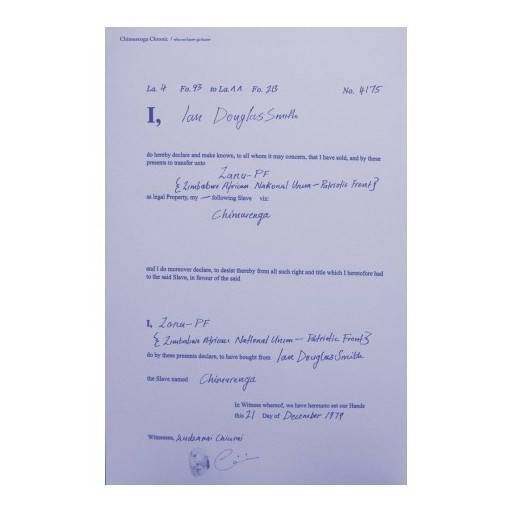 Chimurenga Chronic / who no know go know
La. 4 Fo. 93 to La. 11 Fo. 2B No. 4175
I, Ian Douglas Smith
do hereby declare and make known, to all whom it may concern, that I have sold, and by these
presents to transfer unto
Zanu-PF
{Zimbabwe African National Union - Patriotic Front}
as legal Property, my — following Slave viz:
Chimurenga
and I do moreover declare, to desist thereby from all such right and title which I heretofore had
to the said Slave, in favour of the said
I, Zanu-PF
{Zimbabwe African National Union - Patriotic Front}
do by these presents declare, to have bought from Ian Douglas Smith
the Slave named Chimurenga
In Witness whereof, we have hereunto set our Hands
this 21 Day of December 1979
Witnesses, Kudzanai Chiurai